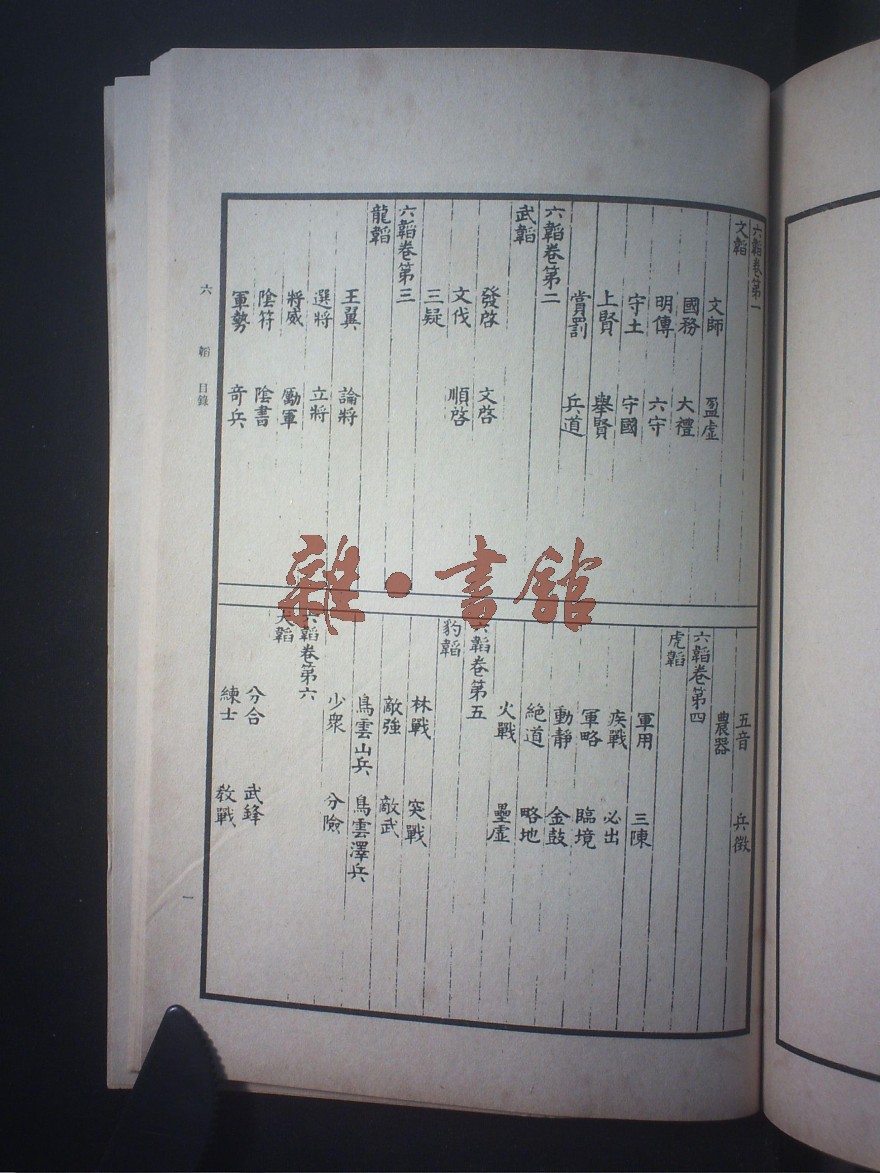 六韜卷第一
文韜
文師 盈虛
國務 大禮
明傳 六守
守土 守國
上賢 舉賢
賞罰 兵道
六韜卷第二
武韜
發啓 文啓
文伐 順啓
三疑
六韜卷第三
龍韜
王翼 論將
選將 立將
將威 勵軍
陰符 陰書
軍勢 奇兵
五音 兵徵
農器
六韜卷第四
虎韜
軍用 三陳
疾戰 必出
軍略 臨境
動靜 金鼓
絶道 略地
火戰 壘虛
六韜卷第五
豹韜
林戰 突戰
敵強 敵武
鳥雲山兵 鳥雲澤兵
少衆 分險
六韜卷第六
犬韜
分合 武鋒
練士 敎戰
六韜 目錄
一
雜·書館